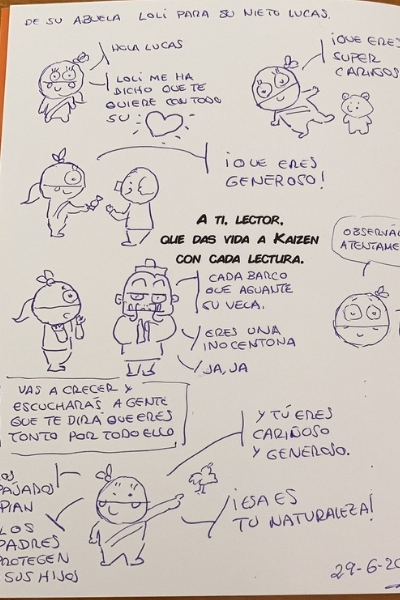 DE SU ABUELA LOLI PARA SU NIETO LUCAS.
HOLA LUCAS
LOLI ME HA
DICHO QUE TE
QUIERE CON TODO
SU
¡QUE ERES
SUPER
CARIÑOS
¡QUE ERES
GENEROSO!
A TI, LECTOR,
QUE DAS VIDA A KAIZEN
CON CADA LECTURA.
OBSERVÁ
ATENTAME
CADA BARCO
QUE AGUANTE
SU VELA.
ERES UNA
INOCENTONA
JA, JA
VAS A CRECER Y
ESCUCHARÁS A GENTE
QUE TE DIRÁ QUE ERES
TONTO POR TODO ELLO
Y TÚ ERES
CARIÑOSO
Y GENEROSO.
OS
PIAN
LOS
PADRES
PROTEGEN
SUS HIJOS
¡ESA ES
TU NATURALEZA!
29-6-20